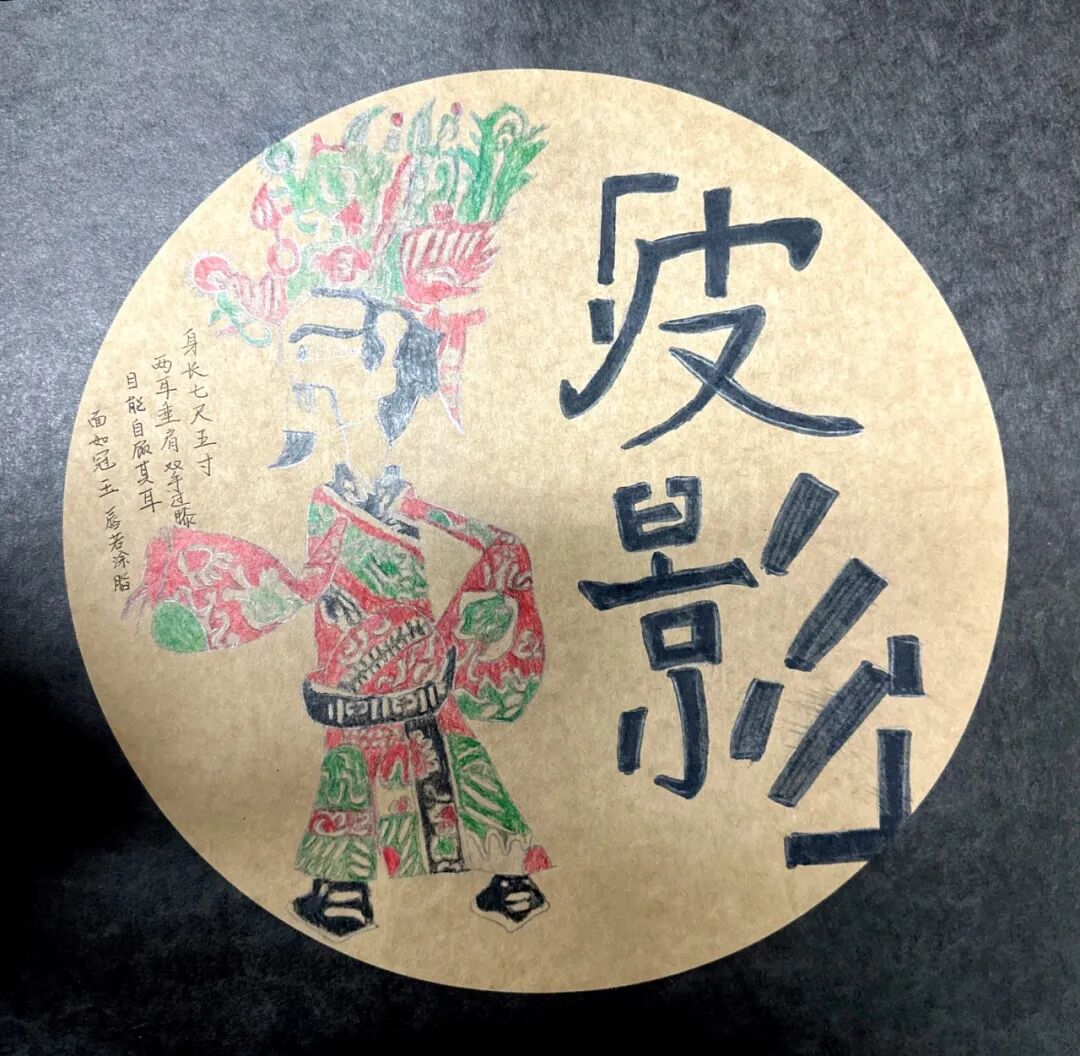 「皮影」
身长七尺五寸
两耳垂肩 双手过膝
目能自顾其耳
面如冠玉 唇若涂脂